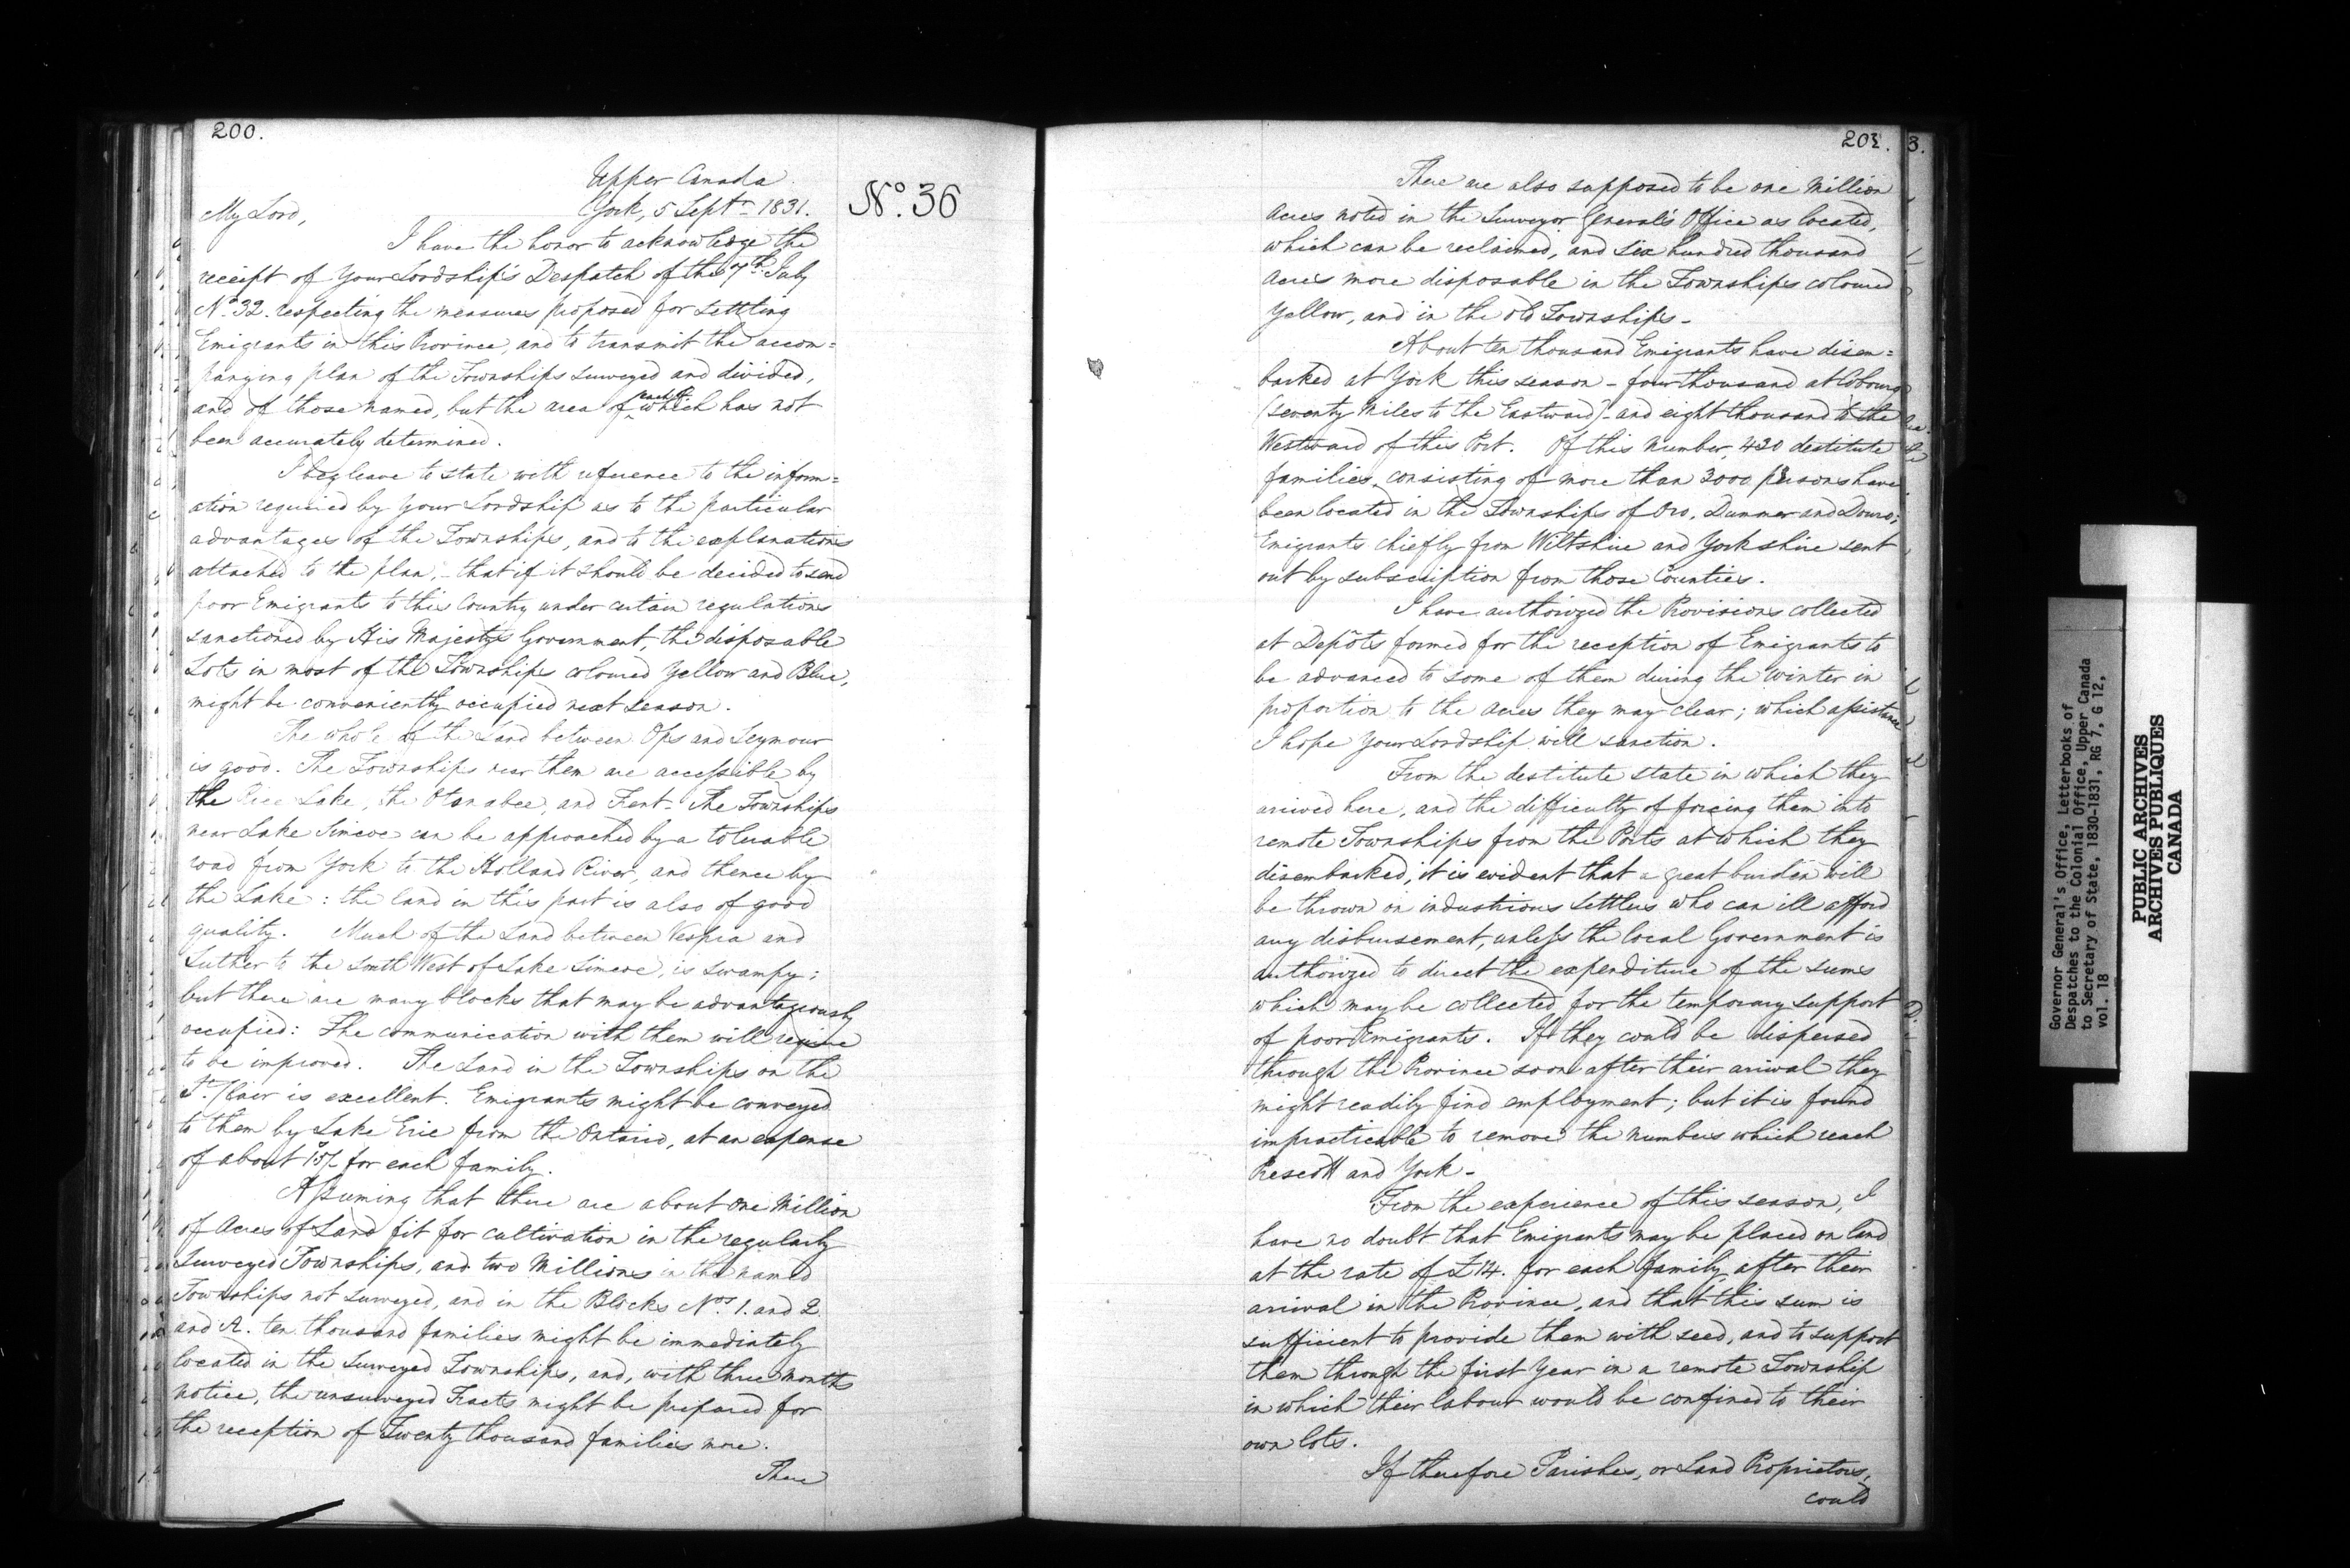 200.
Upper Canada
York, 5 Septr 1831.
No. 36
My Lord,
I have the honor to acknowledge the
receipt of Your Lordship's Despatch of the 7th July
No. 32. respecting the measures proposed for settling
Emigrants in this Province, and to transmit the accom=
panying plan of the Townships surveyed and divided,
and of those named, but the area of each of which has not
been accurately determined.
I beg leave to state with reference to the inform=
ation required by Your Lordship as to the particular
advantages of the Townships, and to the explanations
attached to the plan, – that if it should be decided to send
poor Emigrants to this Country under certain regulations
sanctioned by His Majesty's Government, the disposable
Lots in most of the Townships coloured Yellow and Blue,
might be conveniently occupied next season.
The whole of the Land between Ops and Seymour
is good. The Townships near them are accessible by
the Rice Lake, the Otanabee, and Trent – The Townships
near Lake Simcoe can be approached by a tolerable
road from York to the Holland River, and thence by
the Lake : the land in this part is also of good
quality. Much of the Land between Vespra and
Luther to the South West of Lake Simcoe, is swampy;
but there are many blocks that may be advantageously
occupied: The communication with them will require
to be improved. The Land in the Townships on the
St. Clair is excellent. Emigrants might be conveyed
to them by Lake Erie from the Ontario, at an expense
of about 15/- for each family.
Assuming that there are about One Million
of Acres of Land fit for cultivation in the regularly
Surveyed Townships, and two Millions in the named
Townships not surveyed, and in the Blocks Nos 1. and 2
and A. ten thousand families might be immediately
located in the Surveyed Townships, and, with three months
notice, the unsurveyed Tracts might be prepared for
the reception of Twenty thousand families more.
There
201.
3.
There are also supposed to be one Million
Acres noted in the Surveyor General's Office as located,
which can be reclaimed, and six hundred thousand
Acres more disposable in the Townships coloured
Yellow, and in the old Townships –
About ten thousand Emigrants have disem=
barked at York this season – four thousand at Cobourg
(seventy Miles to the Eastward) – and eight thousand to the
Westward of this Port. Of this number, 420 destitute
families, consisting of more than 3000 persons have
been located in the Townships of Oro, Dummer and Douro;
Emigrants chiefly from Wiltshire and Yorkshire sent
out by subscription from those Counties.
I have authorized the Provisions collected
at Depôts formed for the reception of Emigrants to
be advanced to some of them during the Winter in
proportion to the Acres they may clear; which assistance
I hope Your Lordship will sanction.
From the destitute state in which they
arrived here, and the difficulty of forcing them into
remote Townships from the Ports at which they
disembarked, it is evident that a great burden will
be thrown on industrious Settlers who can ill afford
any disbursement, unless the local Government is
authorized to direct the expenditure of the sums
which may be collected for the temporary support
of poor Emigrants. If they could be dispersed
through the Province soon after their arrival they
might readily find employment; but it is found
impracticable to remove the numbers which reach
Prescott and York –
From the experience of this season, I
have no doubt that Emigrants may be placed on land
at the rate of £14. for each family after their
arrival in the Province, and that this sum is
sufficient to provide them with seed, and to support
them through the first Year in a remote Township
in which their labour would be confined to their
own lots.
If therefore Parishes, or Land Proprietors,
could
Governor General's Office, Letterbooks of
Despatches to the Colonial Office, Upper Canada
to Secretary of State, 1830-1831, RG 7, G 12,
vol. 18
PUBLIC ARCHIVES
ARCHIVES PUBLIQUES
CANADA